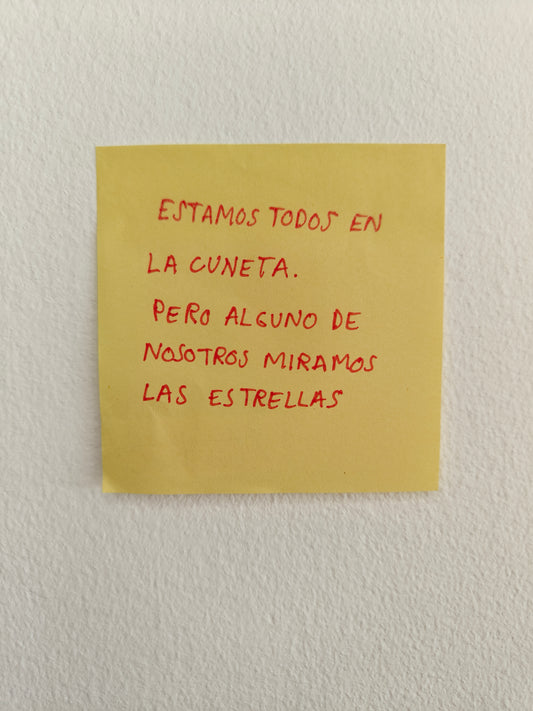 ESTAMOS TODOS EN
LA CUNETA.
PERO ALGUNO DE
NOSOTROS MIRAMOS
LAS ESTRELLAS